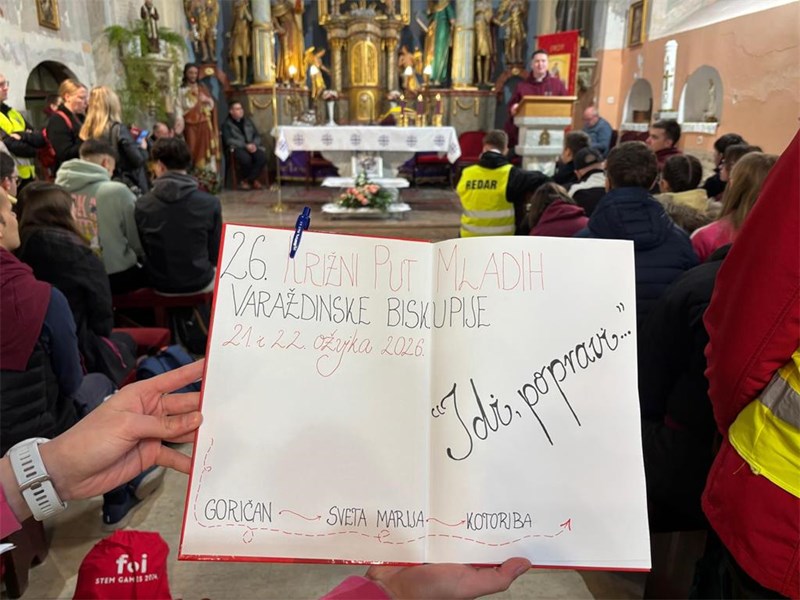 REDAR
26. KRIŽNI PUT MLADIH
VARAŽDINSKE BISKUPIJE
21 i 22. ožujka 2026.
"Idi, popravi..."
GORIČAN SVETA MARIJA KOTORIBA
foi
STEM GAMES 2024.